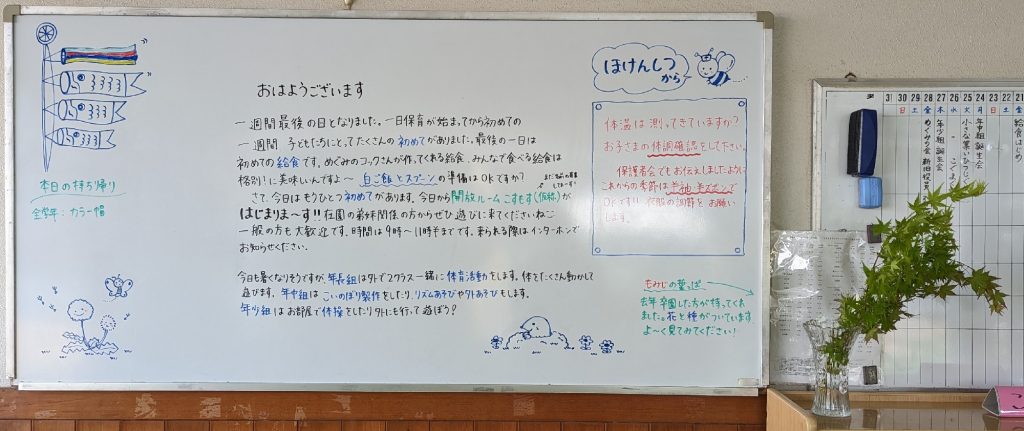 おはようございます
一週間最後の日となりました。一日保育が始まってから初めての
一週間 子どもたちにとってたくさんの初めてがありました。最後の一日は
初めての給食です。めぐみのコックさんが作ってくれる給食、みんなで食べる給食は
格別に美味しいんですよ～ 白ご飯とスプーンの準備はOKですか?
さて、今日はもうひとつ初めてがあります。今日から開放ルームこすもす(仮称)が
はじまりま～す!! 在園の弟妹関係の方からぜひ遊びに来てくださいね
一般の方も大歓迎です。時間は9時～11時半までです。来られる際はインターホンで
お知らせください。
今日も暑くなりそうですが、年長組は外で2クラス一緒に体育活動をします。体をたくさん動かして
遊びます。年中組はこいのぼり製作をしたり、リズムあそびや外あそびもします。
年少組はお部屋で体操をしたり外にも行って遊ぼう?
本日の持ち帰り
全学年:カラー帽
ほけんしつ
から
体温は測ってきていますか?
お子さまの体調確認をして下さい。
保護者会でもお伝えしましたように
これからの季節は半袖半ズボンで
OKです!! 衣服の調節をお願い
します。
もみじの葉っぱ
去年卒園した方が持ってくれ
ました。花と種がついています
よ～く見てみてください!
31 30 29 28 27 26 25 24 23 22 21
日 土 金 木 水 火 月 日 土 金
年少組誕生会
年中組誕生会
給食はじめ